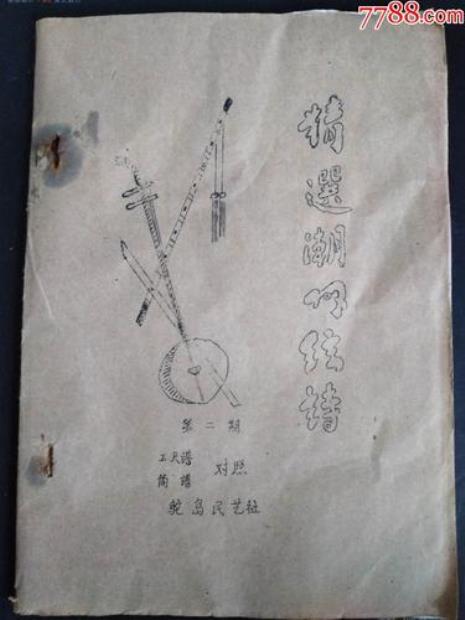 7788.com
精選潮州弦譜
第二期
工尺谱
简谱 对照
鸵岛民艺社